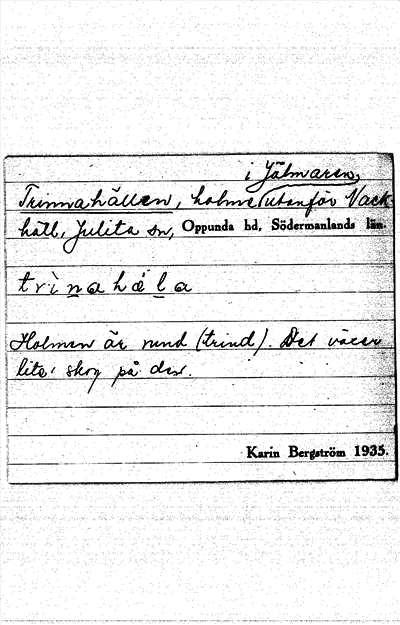 i Jälmaren,
Trinnahällen, holme utanför Vack-
hätl, Julita sn, Oppunda hd, Södermanlands län.
trìnahä́la
Holmen är rund (trind). Det växer
lite skog på den.
Karin Bergström 1935.